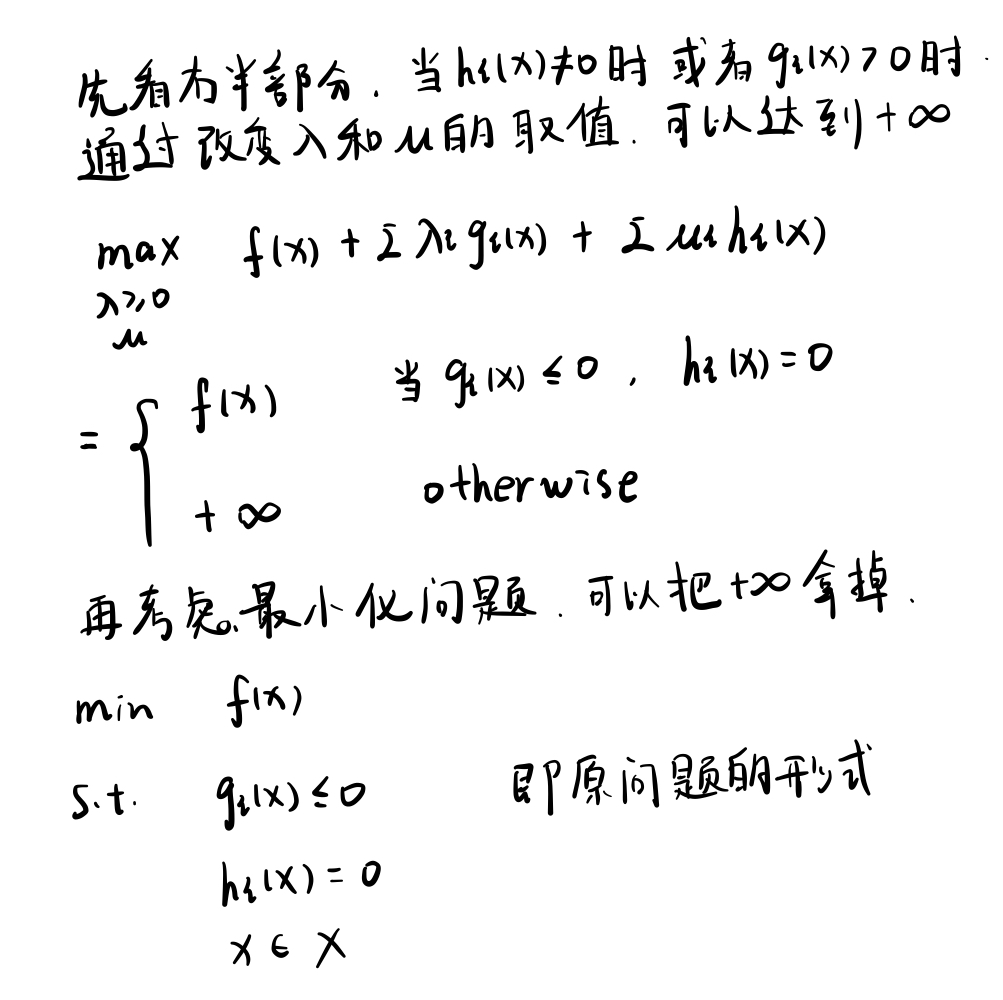 先看右半部分. 当 hᵢ(x)≠0时 或者 gᵢ(x)>0时
通过改变 λ 和 μ 的取值. 可以达到 +∞
max f(x) + Σ λᵢ gᵢ(x) + Σ μᵢ hᵢ(x)
λ≥0
μ
= { f(x) 当 gᵢ(x) ≤ 0 , hᵢ(x) = 0
+ ∞ otherwise
再考虑最小化问题. 可以把 +∞ 拿掉.
min f(x)
s.t. gᵢ(x) ≤ 0 即原问题的形式
hᵢ(x) = 0
x ∈ X